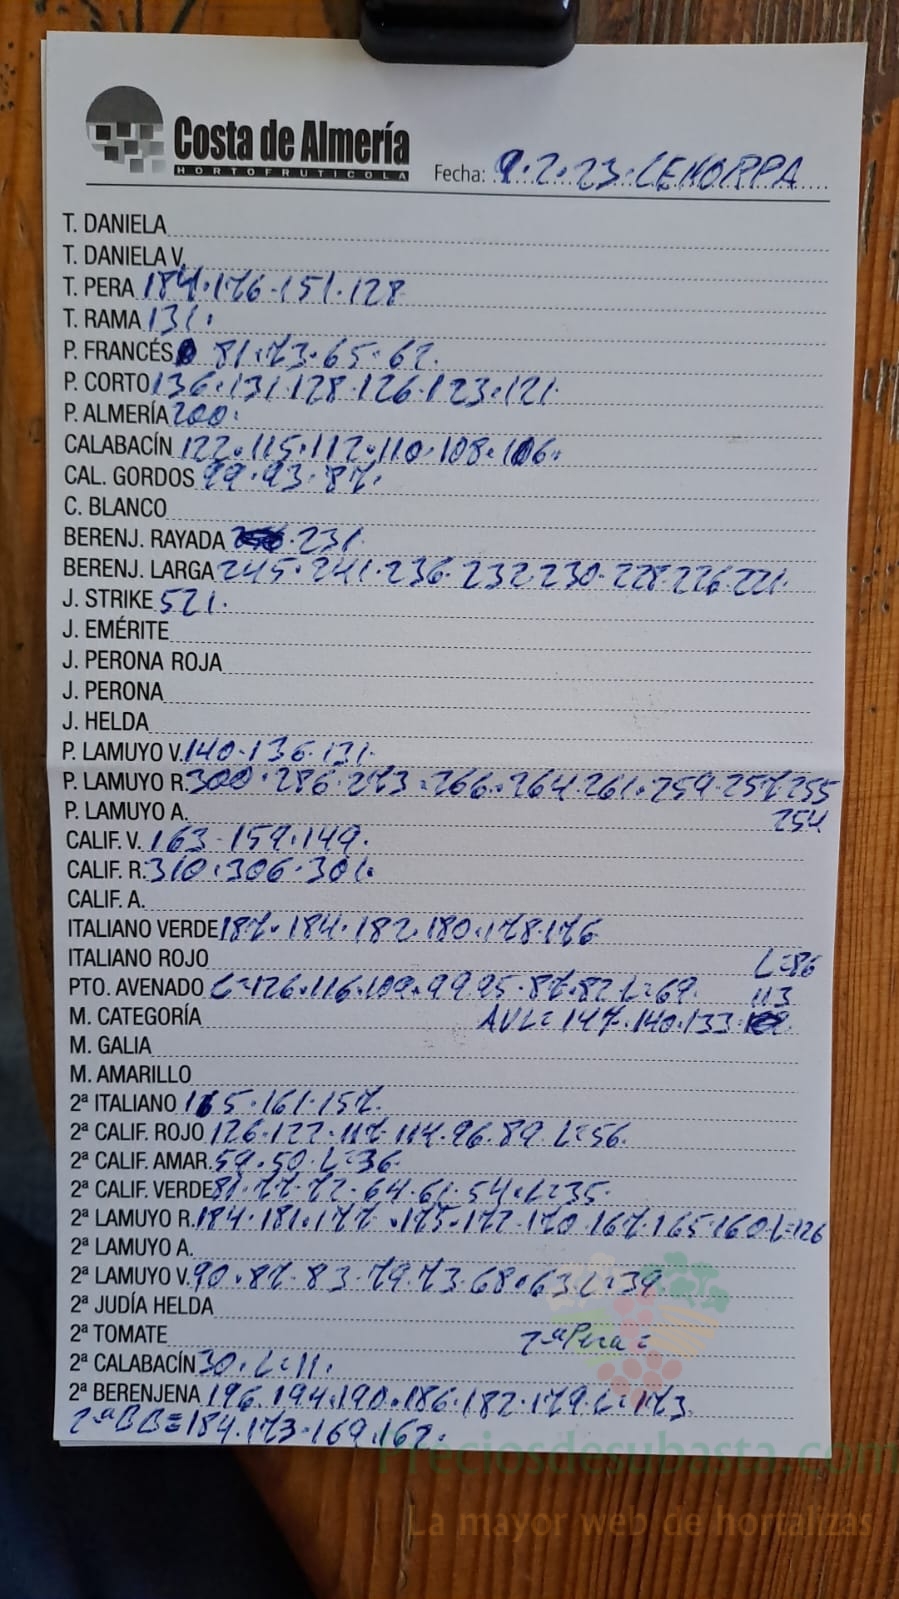 Costa de Almería
HORTOFRUTICOLA
Fecha: 9.2.23. CEHORPA
T. DANIELA
T. DANIELA V.
T. PERA 184.176.151.128
T. RAMA 131.
P. FRANCÉS 81.73.65.62.
P. CORTO 136.131.128.126.123.121.
P. ALMERÍA 200.
CALABACÍN 122.115.112.110.108.106.
CAL. GORDOS 99.93.87.
C. BLANCO
BERENJ. RAYADA .231.
BERENJ. LARGA 245.241.236.232 230.228.226.221.
J. STRIKE 521.
J. EMÉRITE
J. PERONA ROJA
J. PERONA
J. HELDA
P. LAMUYO V. 140.136.131.
P. LAMUYO R. 300.286.273.266.264 261.259.257 255
P. LAMUYO A. 254
CALIF. V. 163-159.149.
CALIF. R. 310.306.301.
CALIF. A.
ITALIANO VERDE 187.184.182.180.178.176
ITALIANO ROJO L=86
PTO. AVENADO L=126.116.109.99 95.87.82 L=69. 113
M. CATEGORÍA AVL=147.140.133
M. GALIA
M. AMARILLO
2ª ITALIANO 165.161.157.
2ª CALIF. ROJO 126.122.117.114.96.89.L=56.
2ª CALIF. AMAR. 59.50.L=36.
2ª CALIF. VERDE 81.77.72-64.61.54.L=35.
2ª LAMUYO R. 184.181.177.175.172.170.167.165.160.L=126
2ª LAMUYO A.
2ª LAMUYO V. 90.87.83.79.73.68.63 L=39.
2ª JUDÍA HELDA
2ª TOMATE 2ª Pera =
2ª CALABACÍN 30.L=11.
2ª BERENJENA 196.194.190.186.182.179.L=173.
2ªBB=184.173.169.162.
Preciosdesubasta.com
La mayor web de hortalizas